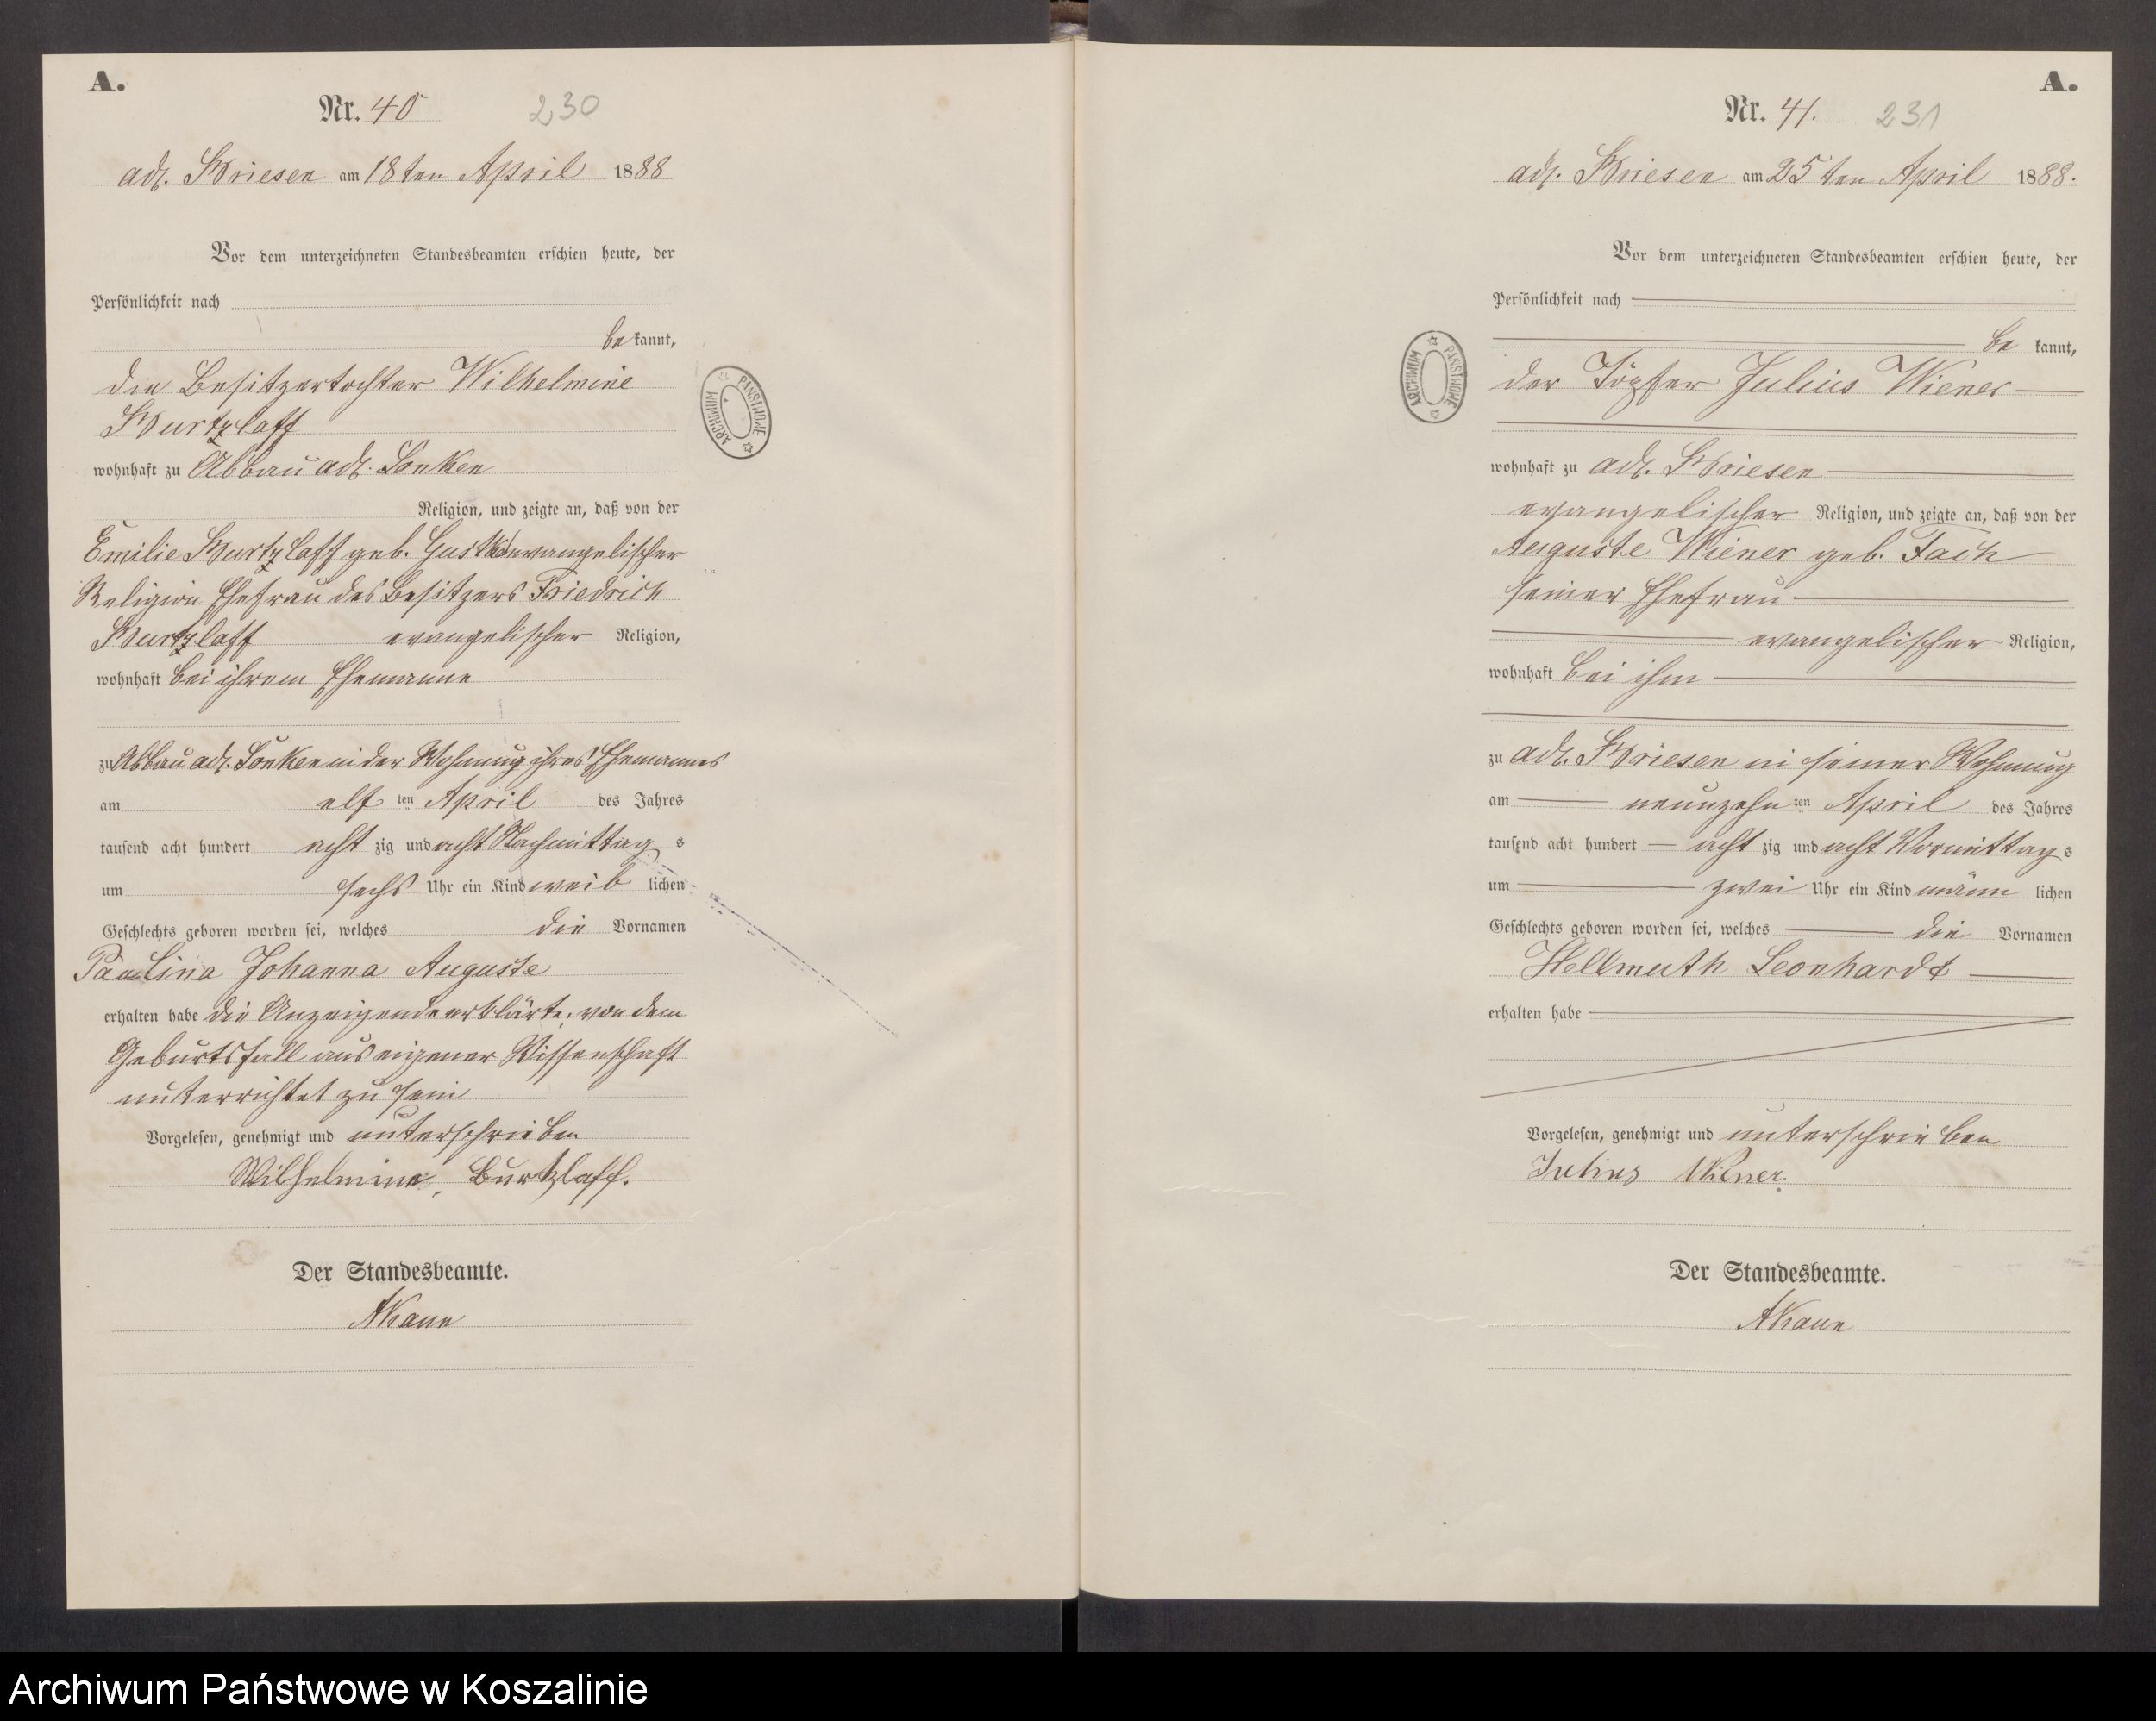 A.
Nr. 40
230
adl. Briesen am 18ten April 1888
Vor dem unterzeichneten Standesbeamten erschien heute, der
Persönlichkeit nach
be kannt,
die Besitzertochter Wilhelmine
Burtzlaff
wohnhaft zu Abbau adl. Lonken
Religion, und zeigte an, daß von der
Emilie Burtzlaff geb. evangelischer
Religion Ehefrau des Besitzers Friedrich
Burtzlaff evangelischer Religion,
wohnhaft bei ihrem Ehemanne
zu Abbau adl. Lonken in der Wohnung ihres Ehemannes
am elf ten April des Jahres
tausend acht hundert acht zig und acht Nachmittag s
um sechs Uhr ein Kind weib lichen
Geschlechts geboren worden sei, welches die Vornamen
Paulina Johanna Auguste
erhalten habe die Anzeigende erklärte, von dem
Geburtsfall aus eigener Wissenschaft
unterrichtet zu sein
Vorgelesen, genehmigt und unterschrieben
Wilhelmine Burtzlaff.
Der Standesbeamte.
ARCHIWUM PAŃSTWOWE
A.
Nr. 41.
231
adl. Briesen am 25ten April 1888.
Vor dem unterzeichneten Standesbeamten erschien heute, der
Persönlichkeit nach
be kannt,
der Töpfer Julius Wiener
wohnhaft zu adl. Briesen
evangelischer Religion, und zeigte an, daß von der
Auguste Wiener geb. Fach
seiner Ehefrau
evangelischer Religion,
wohnhaft bei ihm
zu adl. Briesen in seiner Wohnung
am neunzehn ten April des Jahres
tausend acht hundert acht zig und acht Vormittag s
um zwei Uhr ein Kind männ lichen
Geschlechts geboren worden sei, welches die Vornamen
Hellmuth Leonhardt
erhalten habe
Vorgelesen, genehmigt und unterschrieben
Julius Wiener.
Der Standesbeamte.
ARCHIWUM PAŃSTWOWE
Archiwum Państwowe w Koszalinie